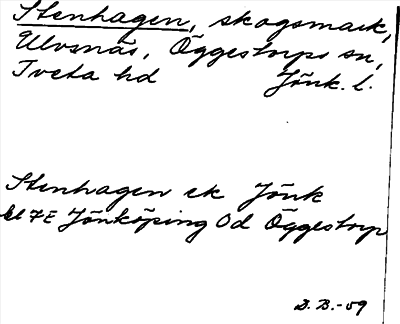 Stenhagen, skogsmark,
Ulvsnäs, Öggestorps sn,
Tveta hd Jönk. l.
Stenhagen ek Jönk
bl 7E Jönköping Od Öggestorp
D. B. -59